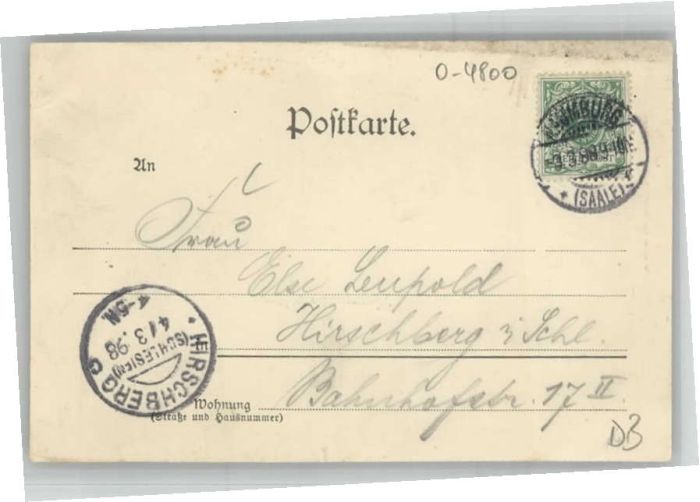 O-4800
NAUMBURG
(SAALE)
Postkarte.
An
Frau
Else Leupold
Hirschberg i/Schl.
Bahnhofstr. 17 II
HIRSCHBERG
(SCHLESIEN)
4/3.98
4-5N.
Wohnung
(Straße und Hausnummer)
DB